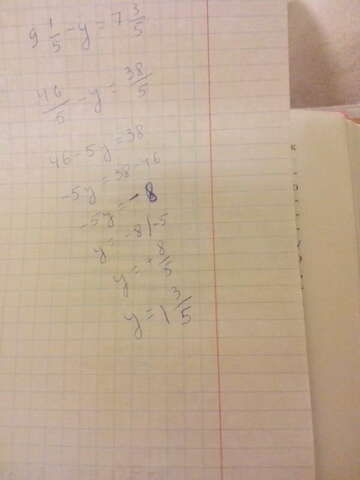 9 1/5 - y = 7 3/5
46/5 - y = 38/5
46 - 5y = 38
-5y = 38 - 46
-5y = -8
y = -8/-5
y = +8/5
y = 1 3/5